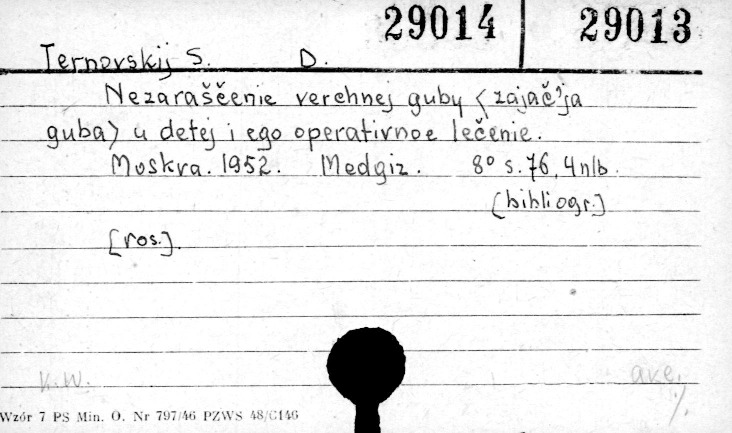 29014 29013
Ternovskij S. D.
Nezaraščenie verchnej guby <zajač'ja
guba> u detej i ego operativnoe lečenie.
Moskva. 1952. Medgiz. 8° s. 76, 4 nlb.
[bibliogr.]
[ros.].
K.W. akc.
Wzór 7 PS Min. O. Nr 797/46 PZWS 48/G146